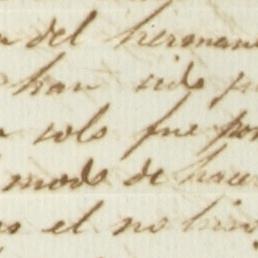 del herman
han sido
solo fue por
modo de hacer
el no